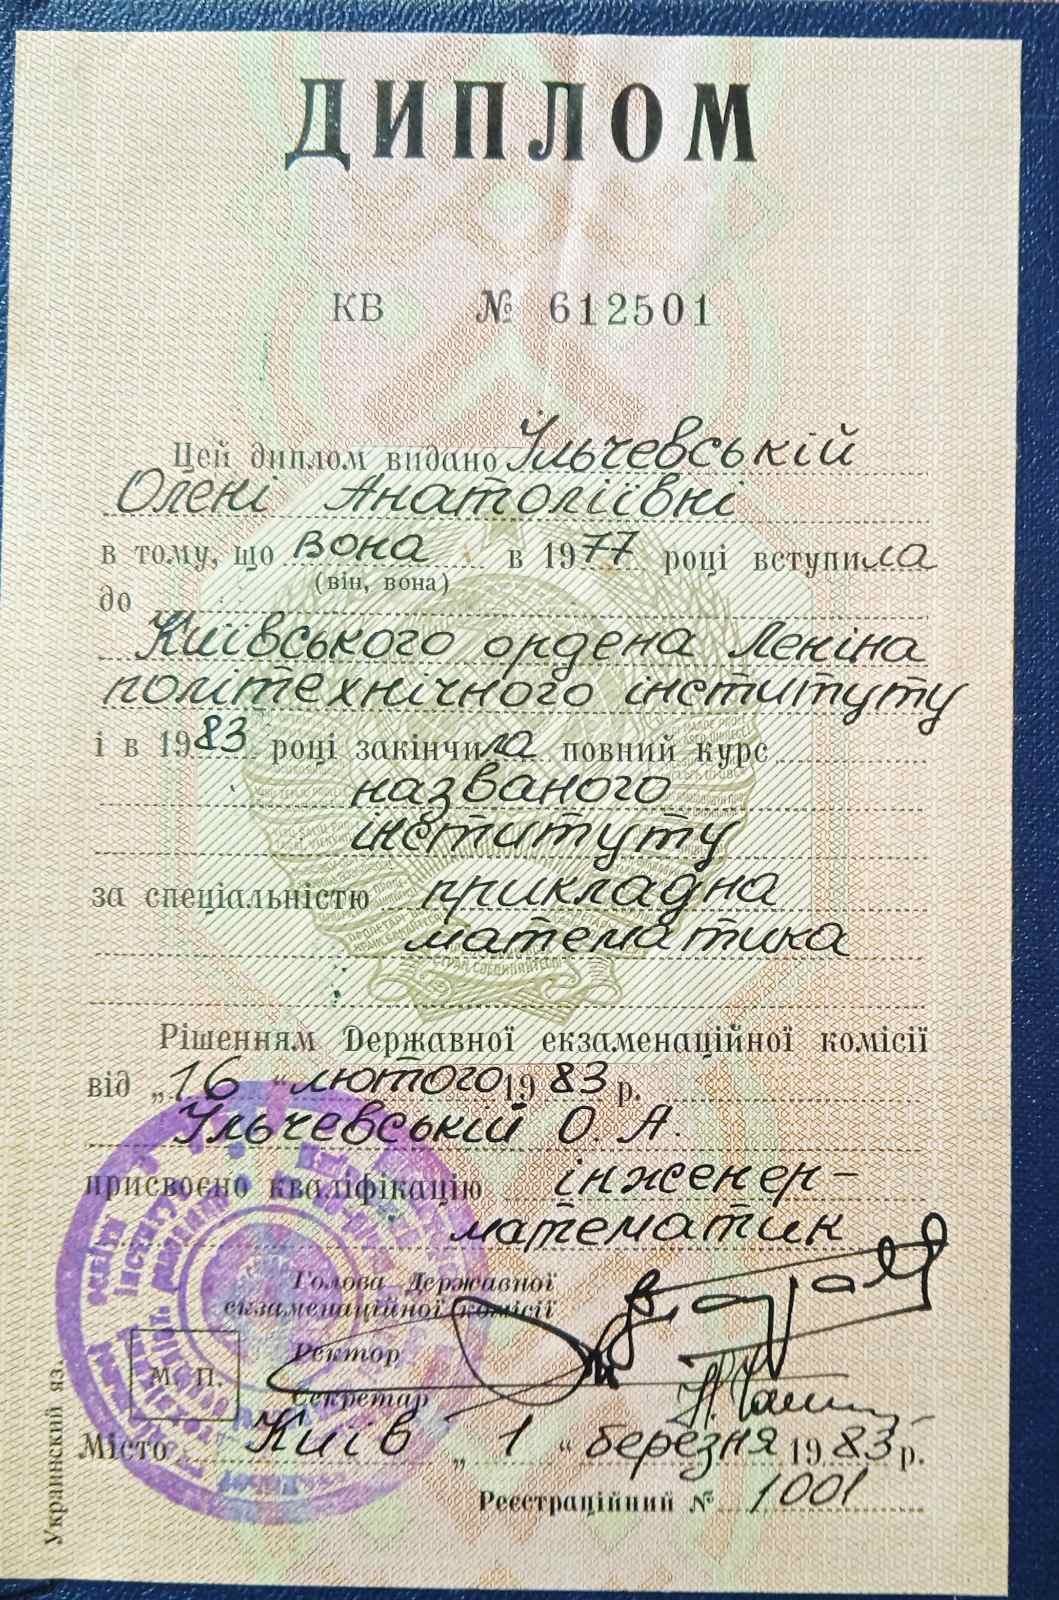 ДИПЛОМ
КВ № 612501
Цей диплом видано Ільчевській
Олені Анатоліївні
в тому, що вона в 1977 році вступила
(він, вона)
до
Київського ордена Леніна
політехнічного інституту
і в 1983 році закінчила повний курс
названого
інституту
за спеціальністю прикладна
математика
Рішенням Державної екзаменаційної комісії
від „16“ лютого 1983 р.
Ільчевській О. А.
присвоєно кваліфікацію інженер-
математик
Голова Державної
екзаменаційної комісії
Ректор
М. П.
Секретар
Місто Київ „1“ березня 1983 р.
Реєстраційний № 1001
Украинский яз.